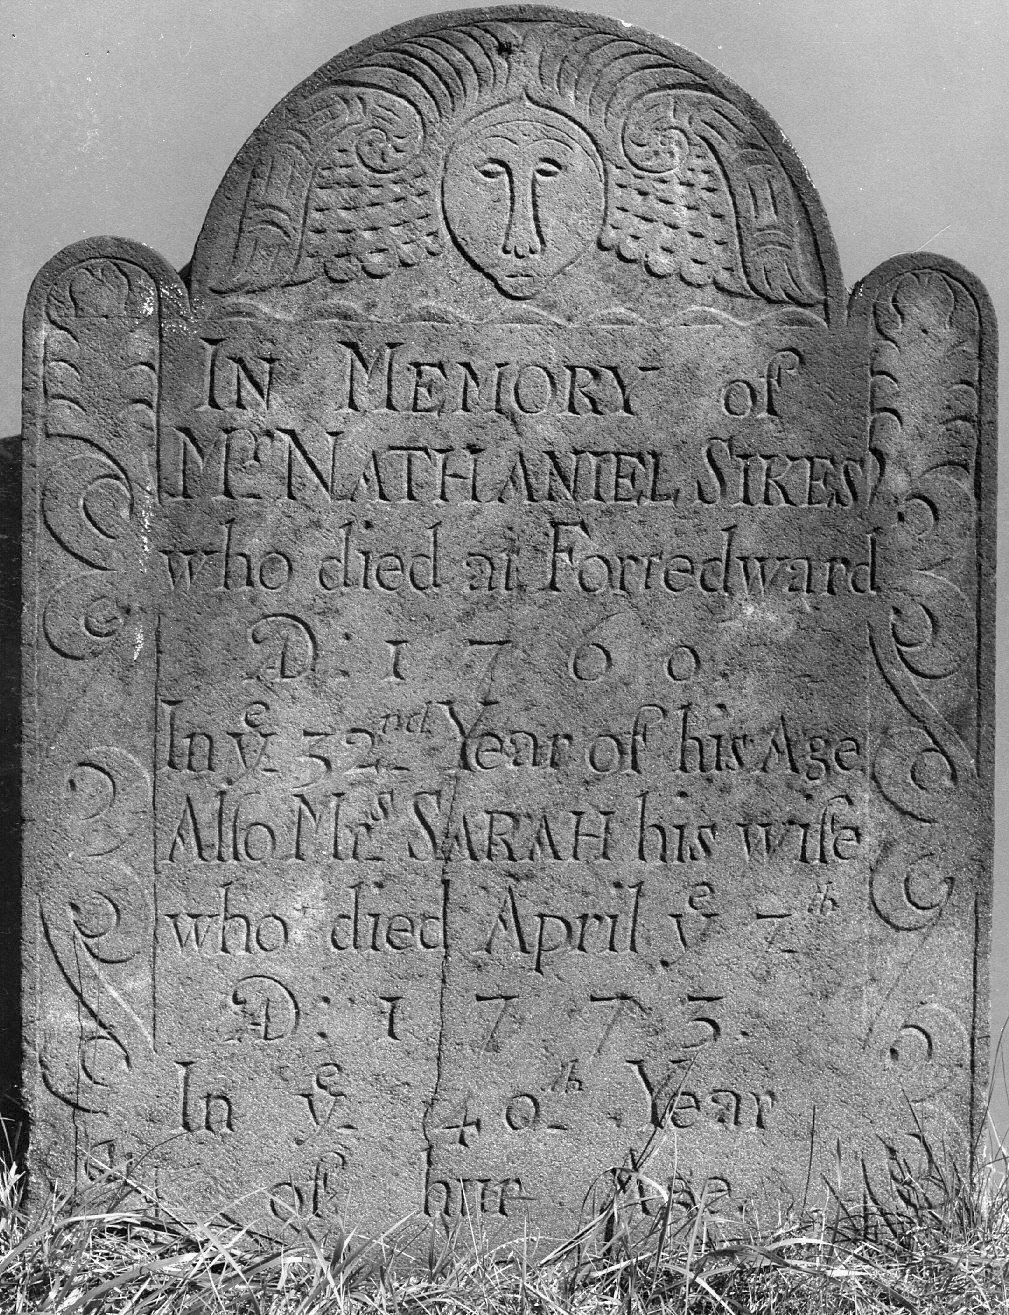 IN MEMORY of
Mr. NATHANIEL SIKES
who died at Forredward
D : 1760.
In ye 32nd Year of his Age
Also Mrs SARAH his wife
who died April ye 7th,
D : 1773.
In ye 40th Year
of hur Age.